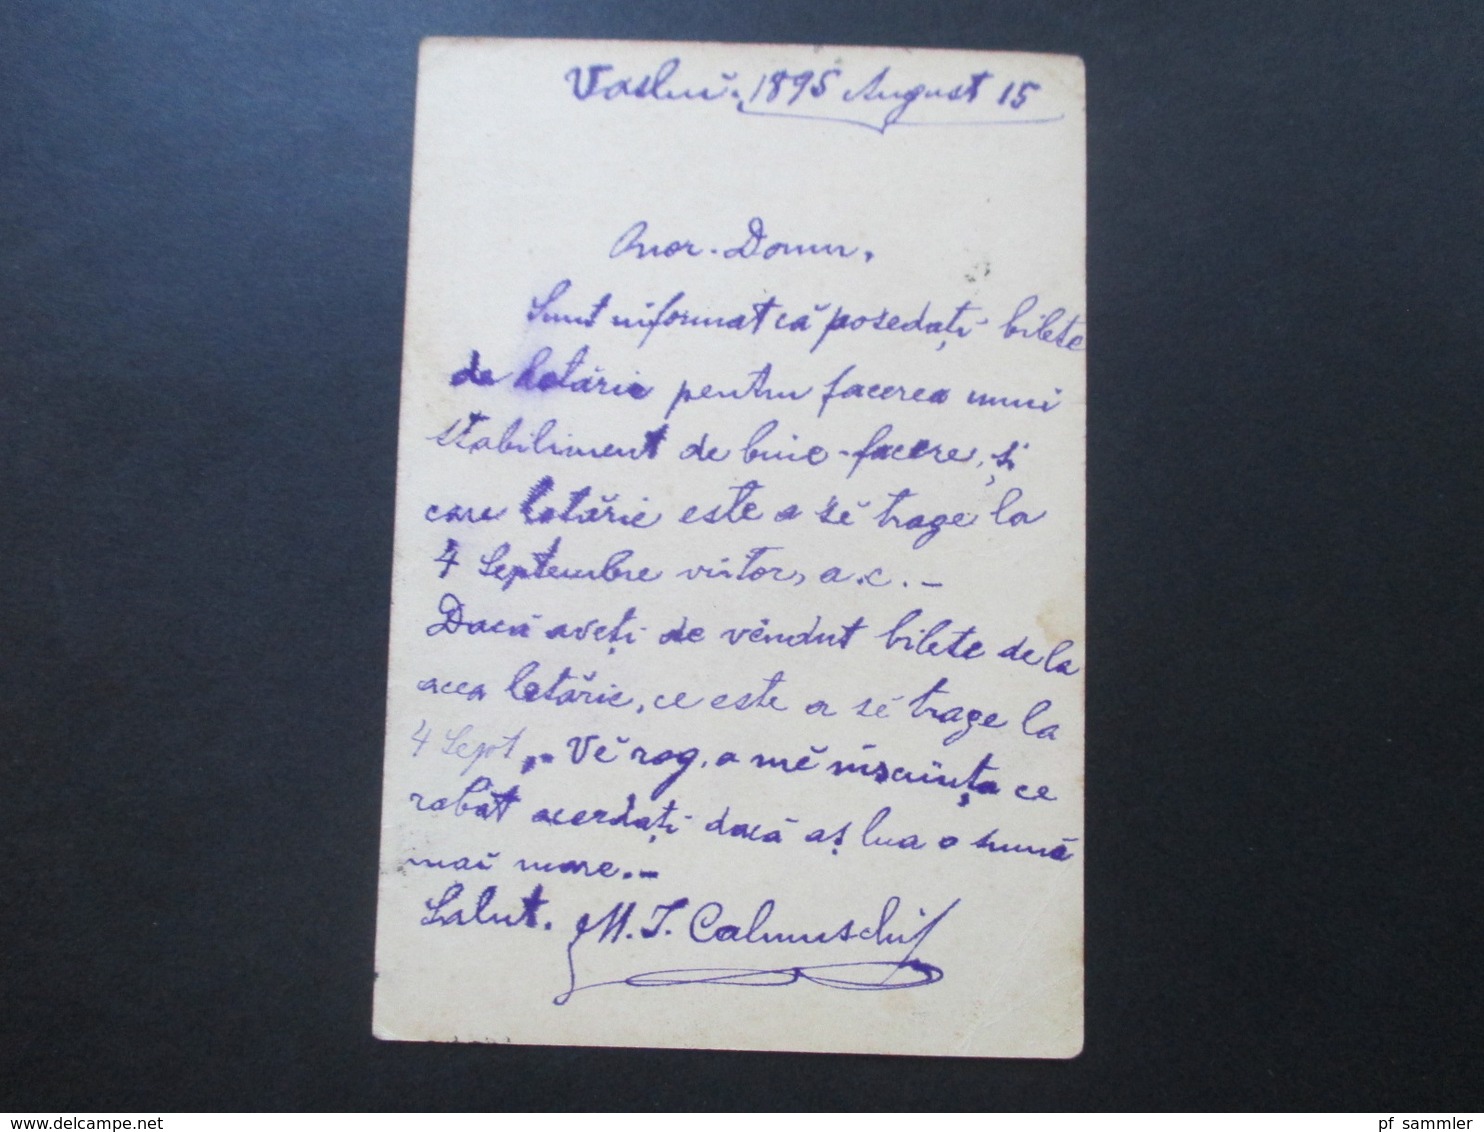 Vasluĭ. 1895 August 15
Onor. Domn,
Sunt informat că posedați bilete
de lotărie pentru facerea unui
stabiliment de bine-facere, și
care lotărie este a sĕ trage la
4 Septembre viitor, a.c. –
Dacă aveți de vêndut bilete de la
acea lotărie, ce este a sĕ trage la
4 Sept. Vĕ rog, a mĕ însciința ce
rabat acordați dacă aș lua o sumă
maĭ mare. –
Salut. M. I. Calmuschi
pf_sammler